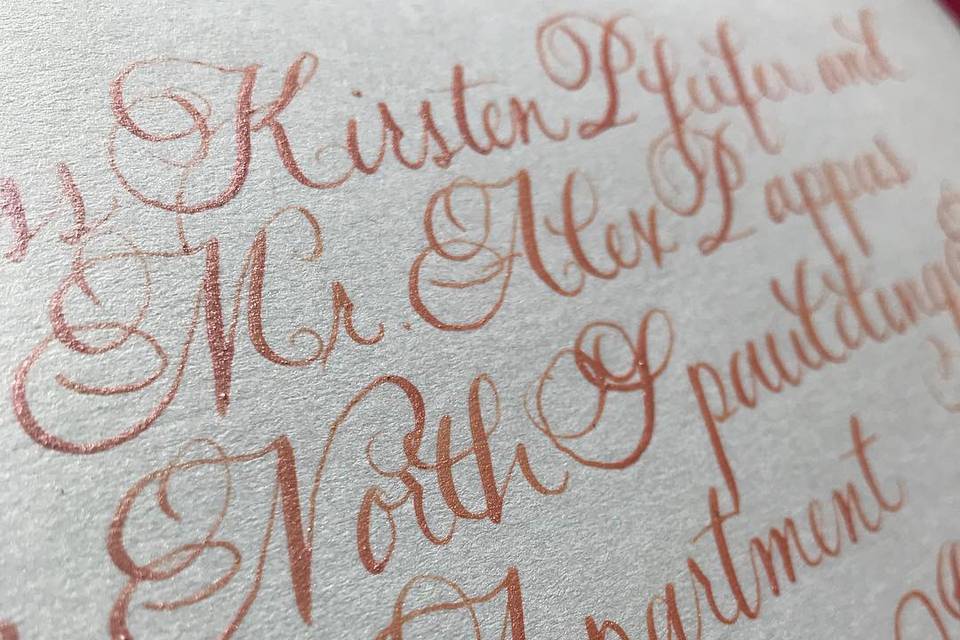 Kirsten Pfeifer and
Mr. Alex Pappas
North Spaulding
Apartment